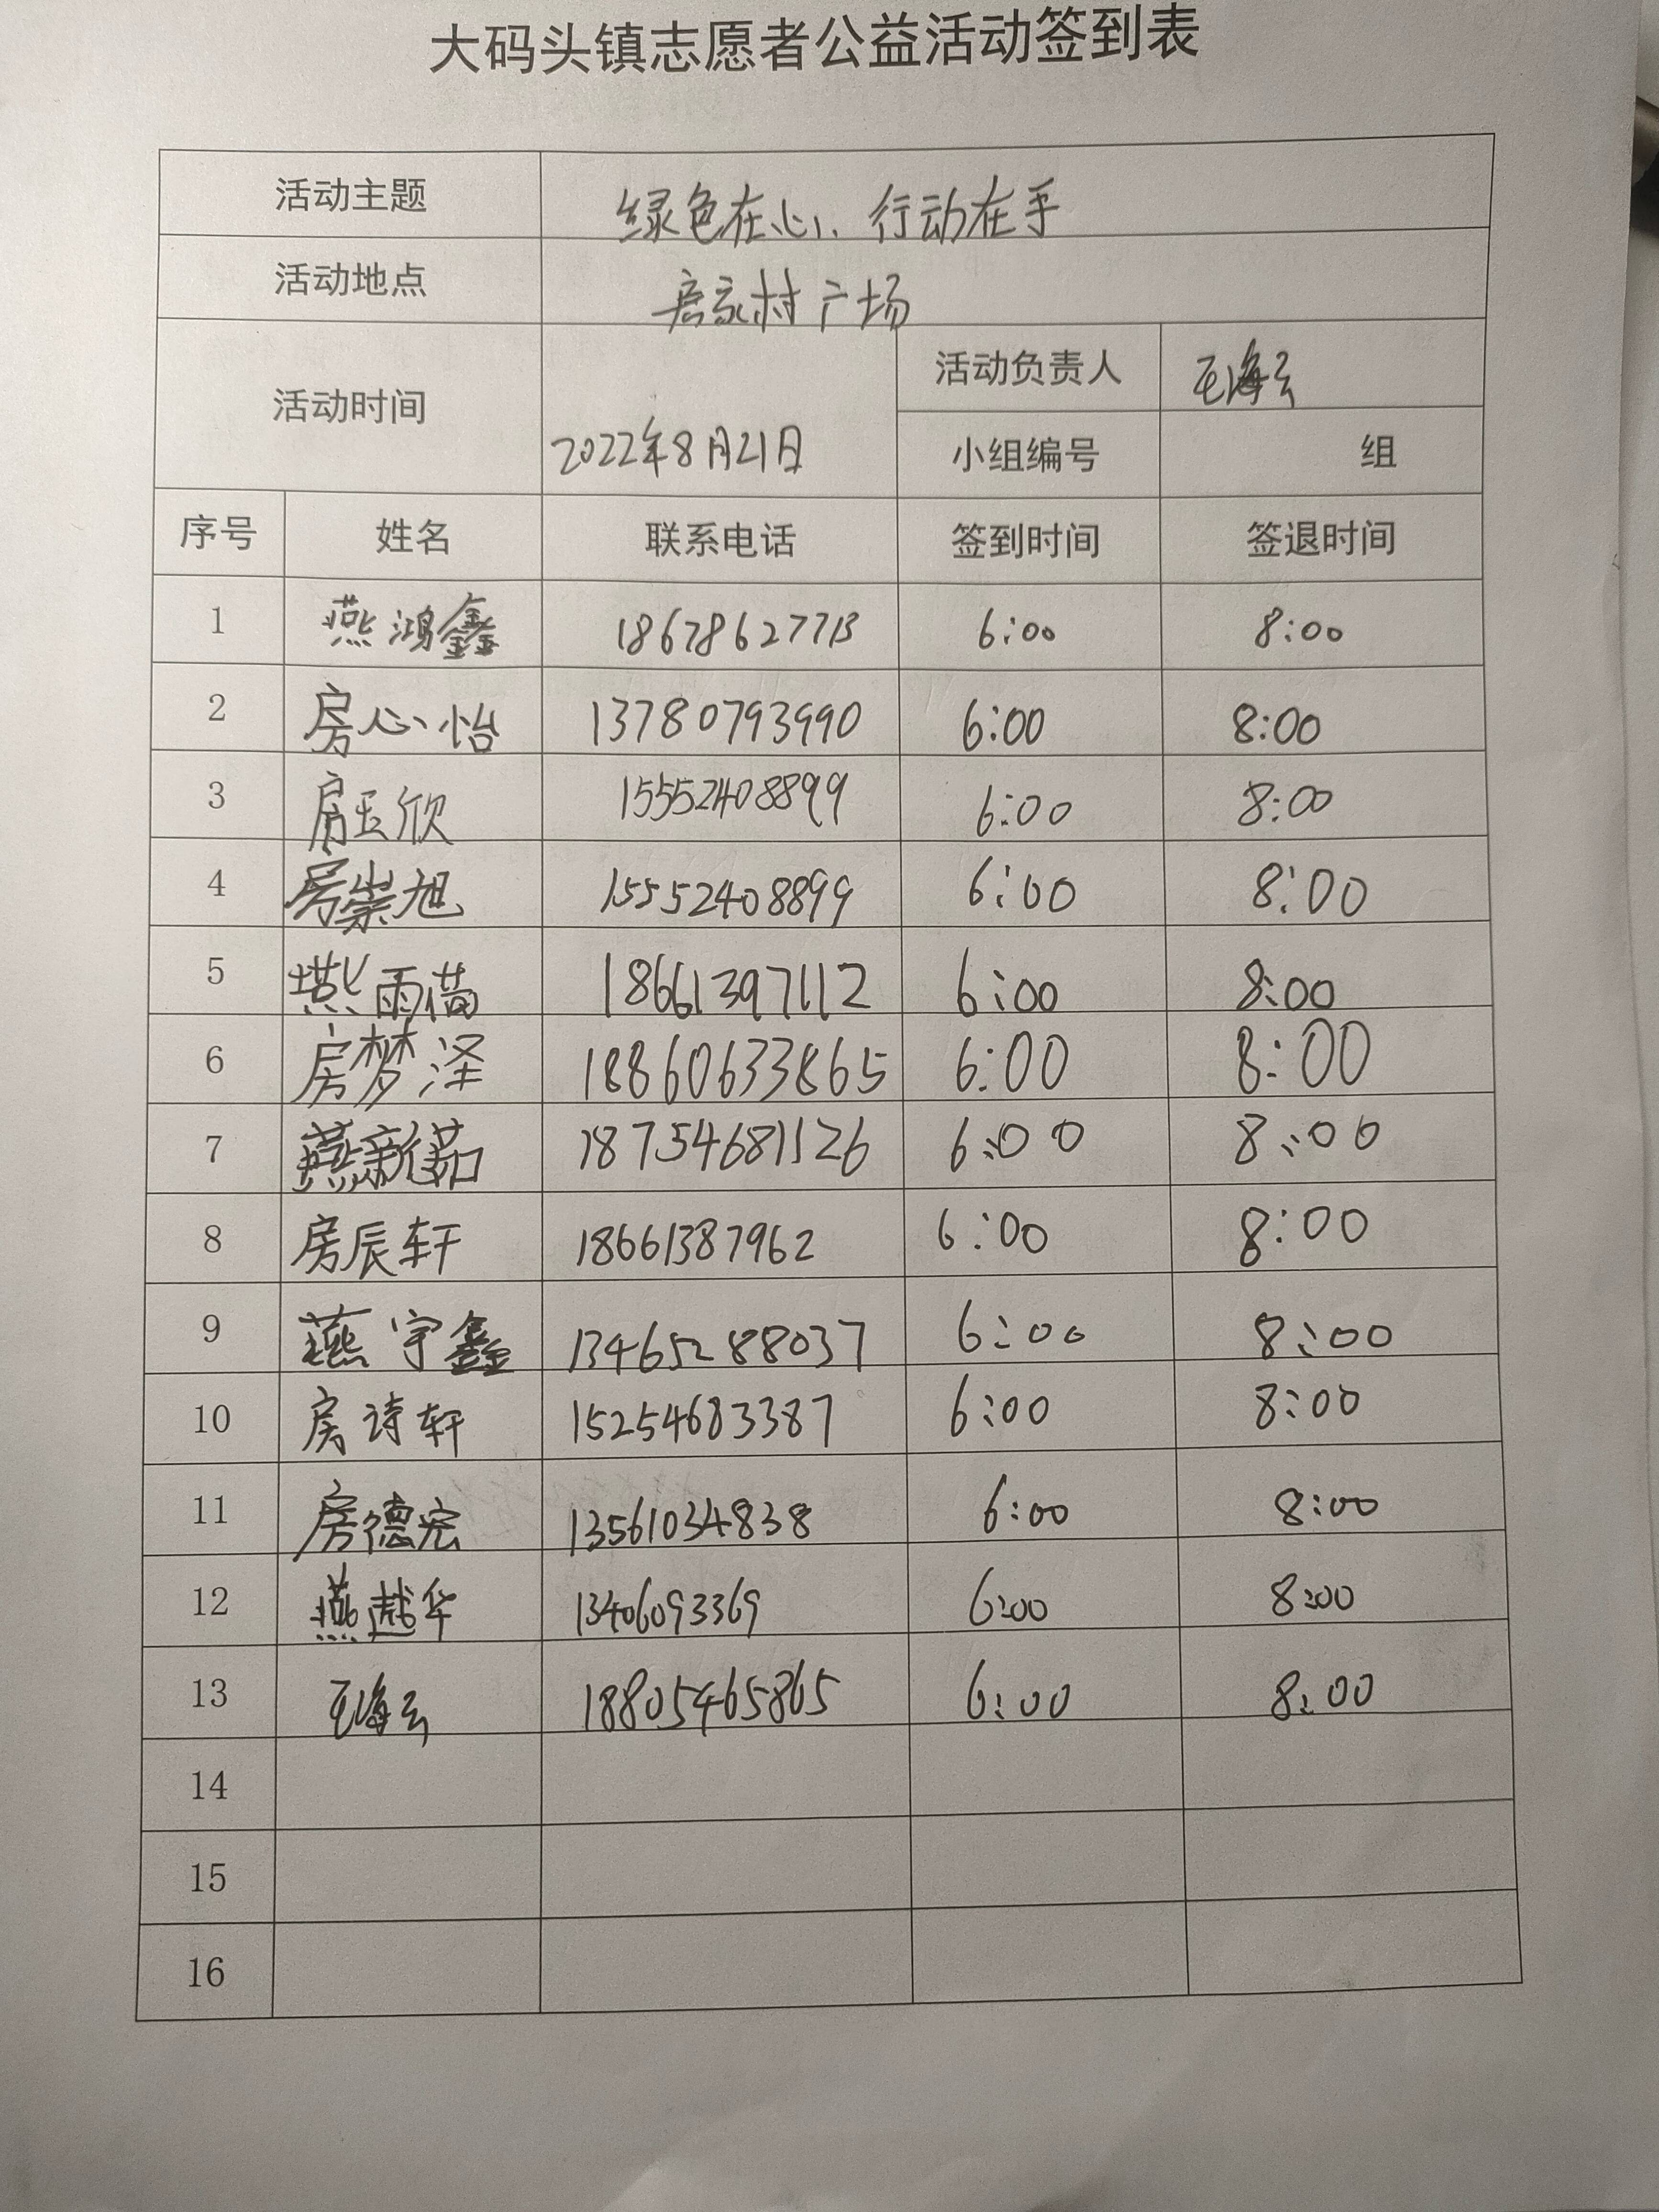 大码头镇志愿者公益活动签到表
活动主题 绿色在心、行动在手
活动地点 房家村广场
活动时间 2022年8月21日 活动负责人 王海云
小组编号 组
序号 姓名 联系电话 签到时间 签退时间
1 燕鸿鑫 18678627713 6:00 8:00
2 房心怡 13780793990 6:00 8:00
3 房玉欣 15552408899 6:00 8:00
4 房崇旭 15552408899 6:00 8:00
5 燕雨 18661397112 6:00 8:00
6 房梦泽 18860633865 6:00 8:00
7 燕新茹 18754681126 6:00 8:00
8 房辰轩 18661387962 6:00 8:00
9 燕宇鑫 13465288037 6:00 8:00
10 房诗轩 15254683387 6:00 8:00
11 房德宏 13561034838 6:00 8:00
12 燕越华 13406093369 6:00 8:00
13 王海云 18805465865 6:00 8:00
14
15
16